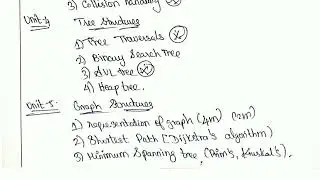 3) Collision handling
Unit-4 Tree Structure
1) Tree Traversals
2) Binary Search Tree
3) AVL tree
4) Heap tree.
Unit-5. Graph Structures
1) representation of graph (4m) (12m)
2) Shortest Path [Dijkstra's algorithm)
3) Minimum Spanning tree (Prim's, Kruskal's).